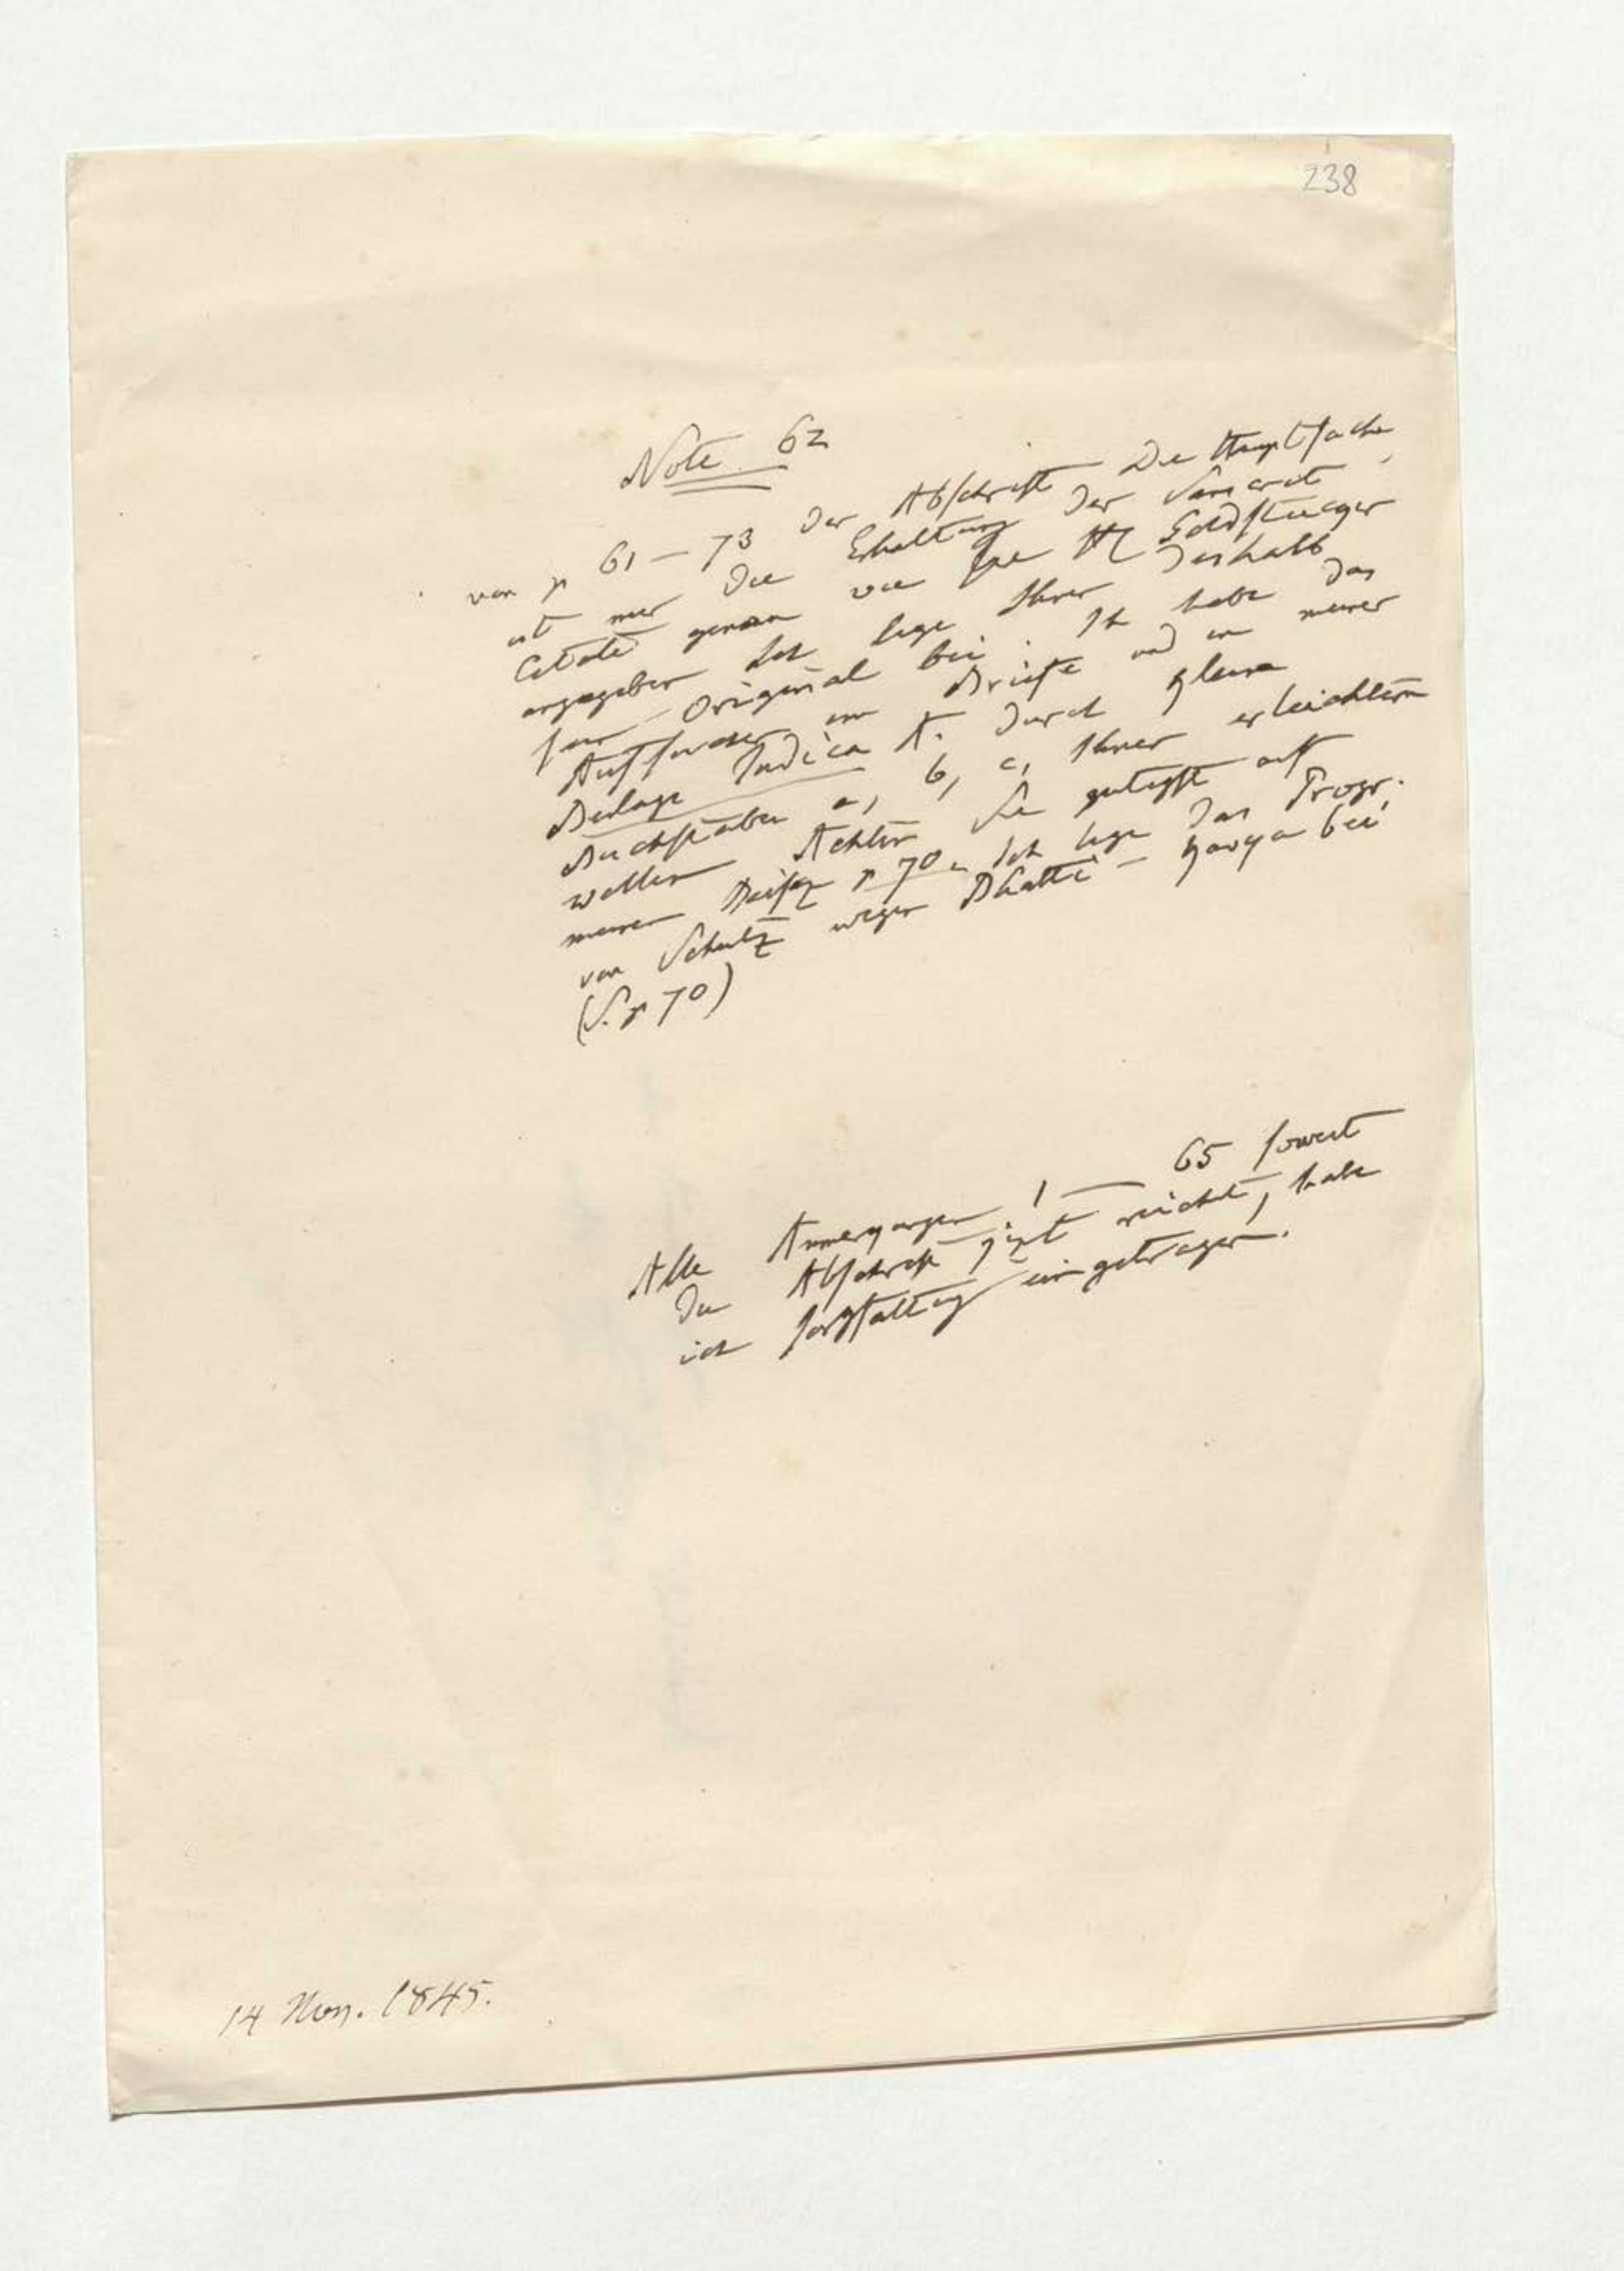 238
Note 62
von p 61 – 73 der Abschrift Die Hauptsache
ist mir die Erhaltung der Sanscrit
Citate genau wie sie H Goldstücker
angegeben Ich lege Ihnen deshalb
sein Original bei. Ich habe das
Aufsuchen im Briefe und in meiner
Beilage Indica A. durch gleiche
Buchstaben a, b, c, Ihnen erleichtern
wollen Achten Sie gütigst auf
meinen p 70. Ich lege das Progr.
von Schütz wegen Bhatti-kavya bei
(S. p 70)
Alle Anmerkungen 1 — 65 soweit
die Abschrift jezt reicht, habe
ich sorgfältig eingetragen.
14 Nov. 1845.